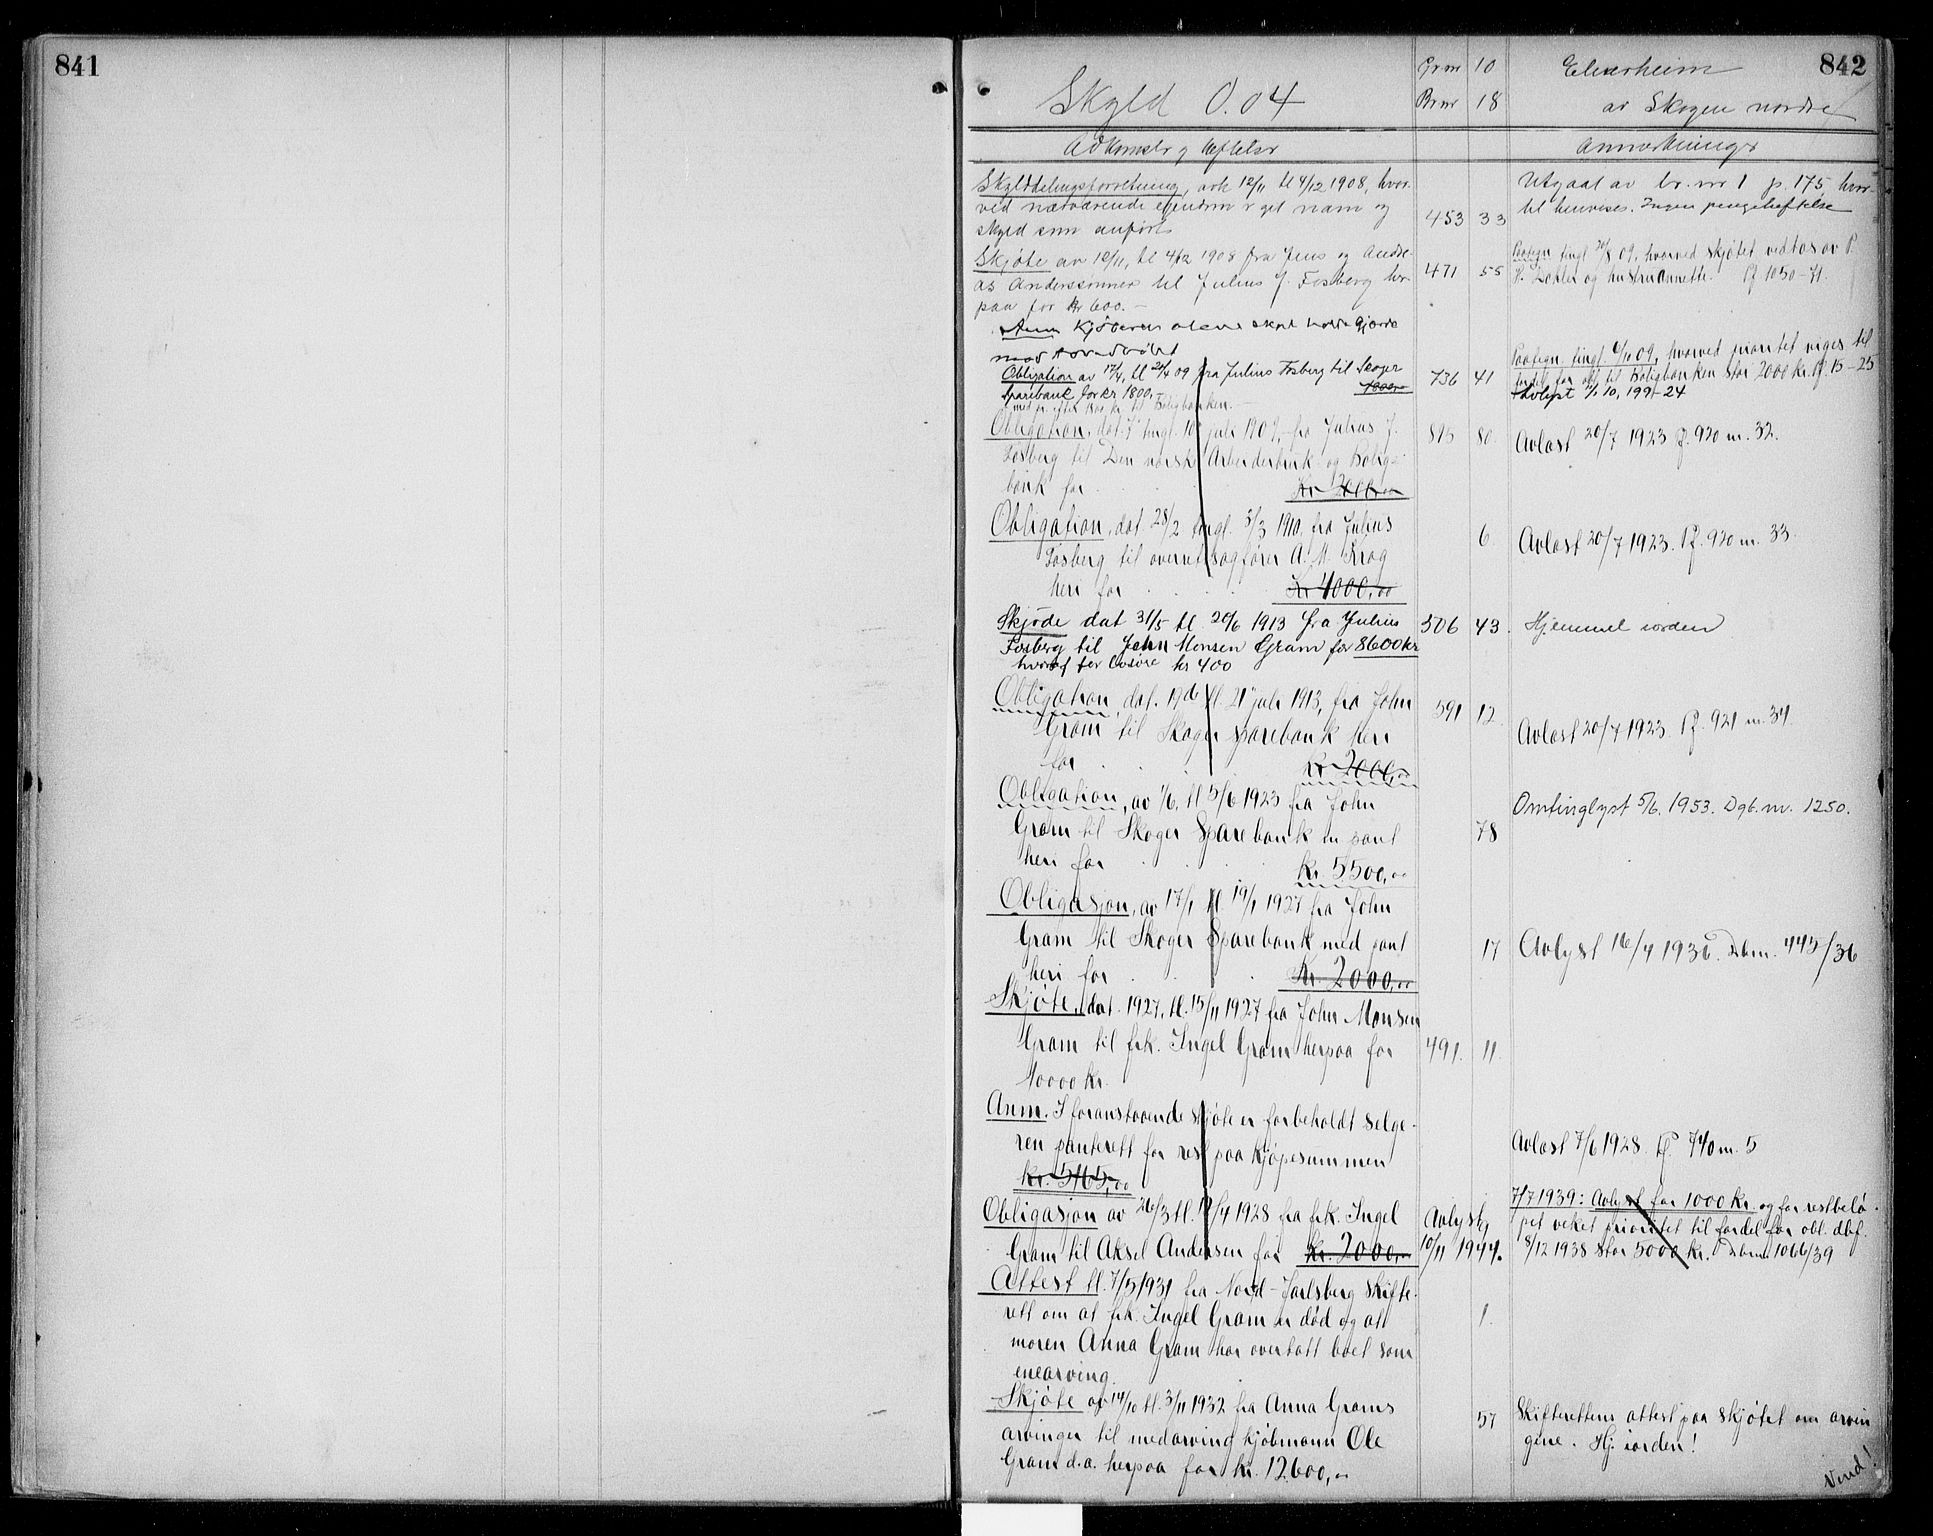 841
842
Skyld 0.04
Grnr 10
Brnr 18
av Skogen nordre
Adkomster og heftelser
Anmerkninger
Skylddelingsforretning, avh 12/11 tl 4/12 1908, hvor-
ved nærværende eiendom er git navn og
skyld som anført
453 33
Utgaat av br. nr 1 p. 175, hvor-
til henvises. Ingen pengeheftelse
Skjøte av 12/11, tl 4/12 1908 fra Jens og Andre-
as Anderssønner til Julius J. Fosberg her-
paa for Kr 600.-
471 55
Paategn tingl 09, hvorved skjøtet vedtas av P.
P. og hustru Annette. Pf 1050-71.
Anm Kjøberen alene skal holde gjærde
mod hovedbølet
Obligation av 17/4, tl 21/4 09 fra Julius Fosberg til Skoger
Sparebank for kr 1800.-
1800.-
med pr. efter 2000 kr. til Boligbanken.-
736 41
Paategn. tingl. 6/11 09, hvorved prioritet viges til
fordel for obl til Boligbanken stor 2000 kr. Pf. 15-25
Avlyst 10, 199-24
Obligation, dat. 7 tingl. 10 juli 1909, fra Julius J.
Fosberg til Den norske Arbeiderbruk- og Bolig-
bank for Kr 2000,00
815 80
Avlæst 20/7 1923 Pf. 920 m. 32.
Obligation, dat 28/2 tingl. 5/3 1910, fra Julius
Fosberg til overretssagfører A. M. Krag
heri for Kr 4000,00
6
Avlæst 20/7 1923. Pf. 920 m. 33.
Skjøde dat 31/5 tl. 20/6 1913 fra Julius
Fosberg til John Monsen Gram for 8600 kr
hvoraf for løsøre kr 400
506 43.
Hjemmel iorden
Obligation, dat. 19de tl. 21 juli 1913, fra John
Gram til Skoger Sparebank heri
for Kr 2000,00
591 12
Avlæst 20/7 1923. Pf. 921 m. 34
Obligation, av 1/6, tl 5/6 1923 fra John
Gram til Skoger Sparebank m pant
heri for Kr. 5500,00
78
Omtinglyst 5/6. 1953. Dgb. nr. 1250.
Obligasjon, av 17/1 tl 19/1 1927 fra John
Gram til Skoger Sparebank med pant
heri for Kr. 2000,00
17
Avlyst 16/4 1936. Dbnr. 445/36
Skjøte, dat. 1927, tl. 15/11 1927 fra John Monsen
Gram til frk. Ingel Gram herpaa for
10000 Kr.
491. 11.
Anm. I foranstaaende skjøte er forbeholdt selge-
ren panterett for rest paa kjøpesummen
kr. 5165,00
Avlæst 7/6 1928. Pf. 740 m. 5
Obligasjon av 26/3 tl. 12/4 1928 fra frk. Ingel
Gram til Aksel Andersen for Kr. 2000,00
Avlyst
10/11 1944.
7/7 1939: Avlyst for 1000 Kr. og for restbelø-
pet veket prioritet til fordel for obl. dbf.
8/12 1938 stor 5000 Kr. Dbnr. 1066/39
Attest tl. 7/5 1931 fra Nord-Jarlsberg skifte-
rett om at frk. Ingel Gram er død og at
moren Anna Gram har overtatt boet som
enearving.
1.
Skjøte av 14/10 tl. 3/11 1932 fra Anna Grams
arvinger til medarving kjøbmann Ole
Gram d.a. herpaa for Kr. 12600,00
57
Skifterettens attest paa skjøtet om arvin
gene. Hj. iorden!
Vend!